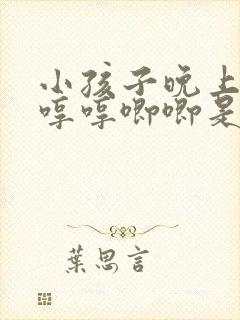 小孩子晚上
哼哼唧唧是
葉思言